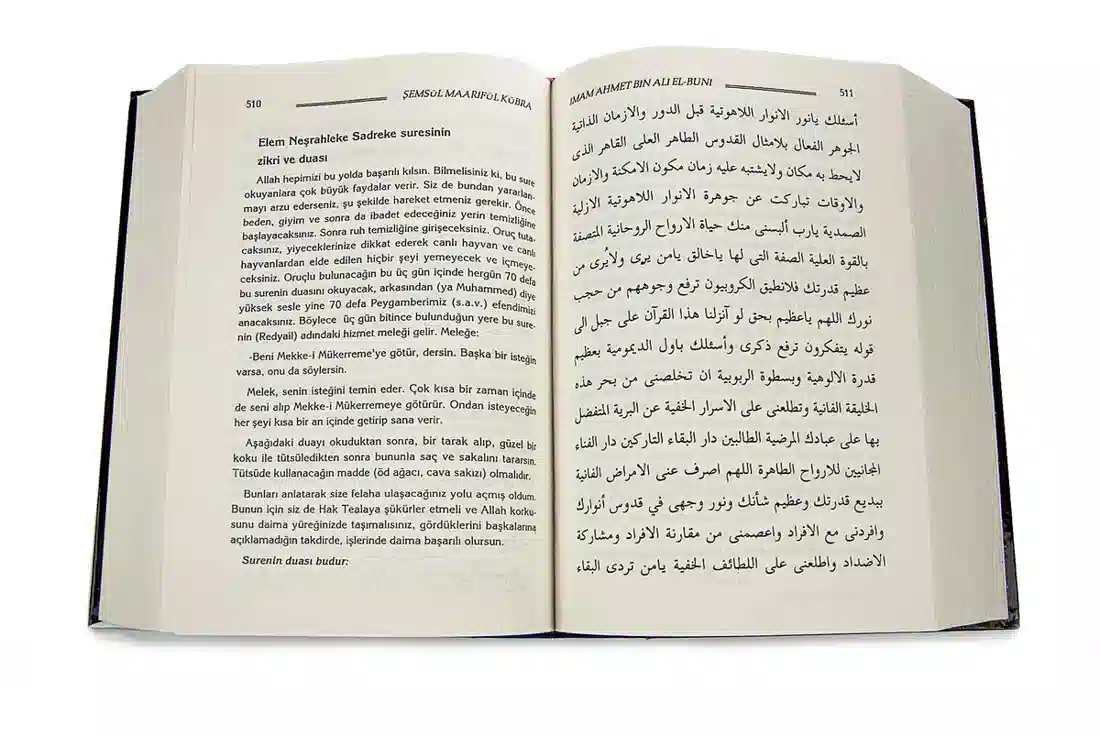 510
ŞEMSÜL MAARİFÜL KÜBRA
Elem Neşrahleke Sadreke suresinin
zikri ve duası
Allah hepimizi bu yolda başarılı kılsın. Bilmelisiniz ki, bu sure
okuyanlara çok büyük faydalar verir. Siz de bundan yararlan-
mayı arzu ederseniz, şu şekilde hareket etmeniz gerekir. Önce
beden, giyim ve sonra da ibadet edeceğiniz yerin temizliğine
başlayacaksınız. Sonra ruh temizliğine girişeceksiniz. Oruç tuta-
caksınız, yiyeceklerinize dikkat ederek canlı hayvan ve canlı
hayvanlardan elde edilen hiçbir şeyi yemeyecek ve içmeye-
ceksiniz. Oruçlu bulunacağın bu üç gün içinde hergün 70 defa
bu surenin duasını okuyacak, arkasından (ya Muhammed) diye
yüksek sesle yine 70 defa Peygamberimiz (s.a.v.) efendimizi
anacaksınız. Böylece üç gün bitince bulunduğun yere bu sure-
nin (Redyail) adındaki hizmet meleği gelir. Meleğe:
-Beni Mekke-i Mükerreme'ye götür, dersin. Başka bir isteğin
varsa, onu da söylersin.
Melek, senin isteğini temin eder. Çok kısa bir zaman içinde
de seni alıp Mekke-i Mükerremeye götürür. Ondan isteyeceğin
her şeyi kısa bir an içinde getirip sana verir.
Aşağıdaki duayı okuduktan sonra, bir tarak alıp, güzel bir
koku ile tütsüledikten sonra bununla saç ve sakalını tararsın.
Tütsüde kullanacağın madde (öd ağacı, cava sakızı) olmalıdır.
Bunları anlatarak size felaha ulaşacağınız yolu açmış oldum.
Bunun için siz de Hak Tealaya şükürler etmeli ve Allah korku-
sunu daima yüreğinizde taşımalısınız, gördüklerini başkalarına
açıklamadığın takdirde, işlerinde daima başarılı olursun.
Surenin duası budur:
İMAM AHMET BİN ALİ EL-BUNİ
511
أسئلك يانور الانوار اللاهوتية قبل الدور والازمان الذاتية
الجوهر الفعال بلامثال القدوس الطاهر العلى القاهر الذى
لايحط به مكان ولايشتبه عليه زمان مكون الامكنة والازمان
والاوقات تباركت عن جوهرة الانوار اللاهوتية الازلية
الصمدية يارب ألبسنى منك حياة الارواح الروحانية المتصفة
بالقوة العلية الصفة التى لها ياخالق يامن يرى ولايُرى من
عظيم قدرتك فلانطيق الكروبيون ترفع وجوههم من حجب
نورك اللهم ياعظيم بحق لو آنزلنا هذا القرآن على جبل الى
قوله يتفكرون ترفع ذكرى وأسئلك باول الديمومية بعظيم
قدرة الالوهية وبسطوة الربوبية ان تخلصنى من بحر هذه
الخليقة الفانية وتطلعنى على الاسرار الخفية عن البرية المتفضل
بها على عبادك المرضية الطالبين دار البقاء التاركين دار الفناء
المجانيين للارواح الطاهرة اللهم اصرف عنى الامراض الفانية
ببديع قدرتك وعظيم شأنك ونور وجهى في قدوس أنوارك
وافردنى مع الافراد واعصمنى من مقارنة الافراد ومشاركة
الاضداد واطلعنى على اللطائف الخفية يامن تردى البقاء